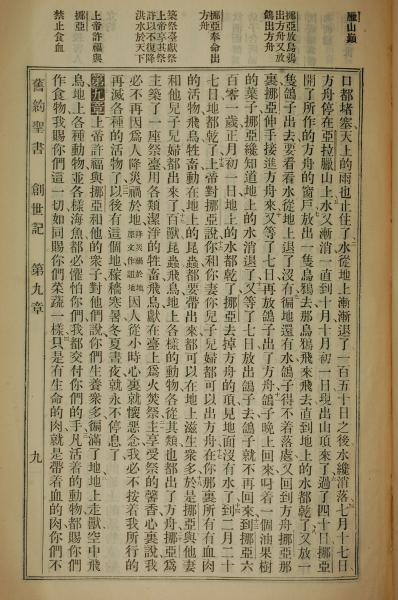 臘山巓
挪亞放烏鴉
出方舟又放
鴿出方舟
挪亞奉命出
方舟
築祭臺獻祭
上帝享其祭
許以不復降
洪水於天下
上帝許福與
挪亞
禁止食血
口都堵塞天上的雨也止住了水從地上漸漸退了一百五十日之後水纔消落七月十七日
方舟停在亞拉臘山上水又漸消一直到十月十月初一日現出山頂來了過了四十日挪亞
開了所作的方舟的窗戶放出一隻烏鴉去那烏鴉飛來飛去直到地上的水都乾了又放一
隻鴿子出去要看看水從地上退了沒有徧地還有水鴿子得不着落處又回到方舟挪亞那
裏挪亞伸手接進方舟來又等了七日再放鴿子出了方舟鴿子晚上回來呌着一個油果樹
的葉子挪亞纔知道地上的水消退了又等了七日放出鴿子去鴿子就不再回來到挪亞六
百零一歲正月初一日地上的水都乾了挪亞去掉方舟的頂見地面沒有水了到二月二十
七日地都乾了上帝對挪亞說你和你妻你兒子兒婦都可以出方舟在你那裏所有有血肉
的活物飛鳥牲畜動在地上的昆蟲都要帶出來都可以在地上滋生衆多於是挪亞與他妻
和他兒子兒婦都出來了百獸昆蟲飛鳥地上各樣的動物各從其類也都出了方舟挪亞爲
主築了一座祭臺用各類潔淨的牲畜飛鳥獻在臺上爲火焚祭主享受祭的馨香心裏說我
必不再因爲人降災禍於地因人從小時心裏就懷惡念我必不按着我所行的
再滅各種的活物了以後有這個地稼穡寒暑冬夏晝夜就永不停息了
第九章上帝許福與挪亞和他的衆子對他們說你們生養衆多徧滿了地地上走獸空中飛
鳥地上各種動物並各樣海魚都必懼怕你們我都交付你們的手凡活着的動物都賜你們
作食物我賜你們這一切如同賜你們菜蔬一樣只是有生命的肉就是帶着血的肉你們不
舊約聖書 創世記 第九章 九